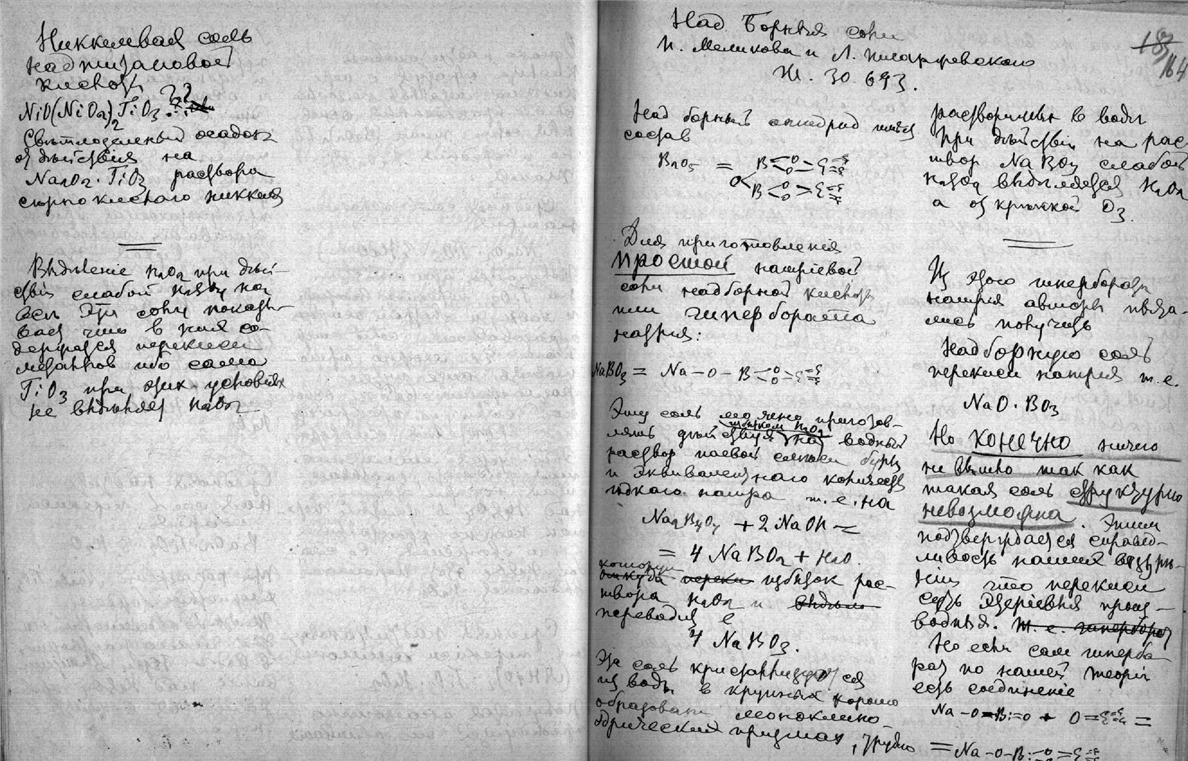 Никкелевая соль
надтитановой
кислоты ??
NiO(NiO2)2TiO3
Светлозеленый осадок
от действия на
Na2O2·TiO3 раствора
сернокислаго никкеля
Выделение H2O2 при дей-
ствии слабой H2SO4 на
все эти соли показы-
вает что в них со-
держатся перекиси
металлов ибо сама
TiO3 при этих условиях
не выделяет H2O2
Над Борныя соли
П. Меликова и Л. Писаржевского
Ж. 30. 693.
183
164
Над борный ангидрид имеет
состав
B2O5 =
Для приготовления
простой натриевой
соли надборной кислоты
или гипербората
натрия:
NaBO3 = Na-O-B
Эту соль можно пригото-
избытком H2O2
влять действуя на водный
раствор смеси буры
и эквивалентнаго количества
едкаго натра т.е. на
Na2B4O7 + 2NaOH =
= 4NaBO2 + H2O.
который
откуда перекись избыток рас-
твора H2O2 и
переводит в
4 NaBO3.
Эта соль кристаллизуется
из воды в крупных хорошо
образован моноклино-
эдрических призмах, трудно
растворимых в воде
При действии на рас-
твор NaBO3 слабой
H2SO4 выделяется H2O2
а от крепкой O3.
Из этого гипербората
натрия авторы пыта-
лись получить
Надборную соль
перекиси натрия т.е.
NaO·BO3
Но конечно ничего
не вышло так как
такая соль структурно
невозможна. Этим
подтверждается справед-
ливость нашей
что перекиси
суть эфирные произ-
водныя. т.е. гиперборат
Но если сам гипербо-
рат по нашей теории
есть соединение
Na-O-B=O + O=
= Na-O-B